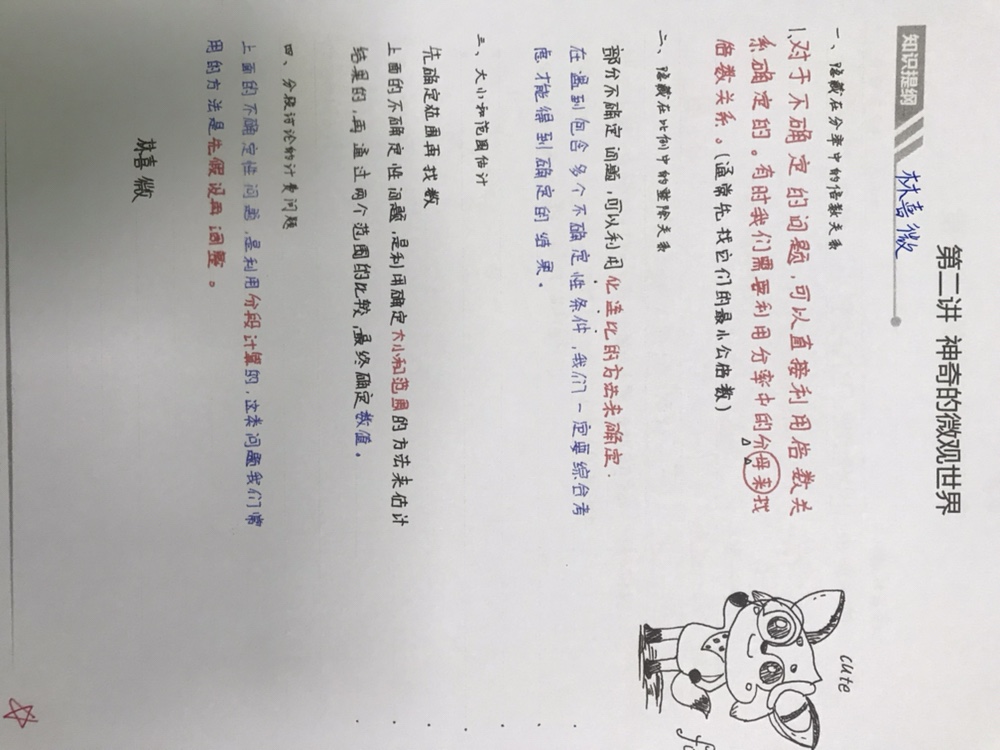 第二讲 神奇的微观世界
知识提纲 林喜微
一、隐藏在分率中的倍数关系
1.对于不确定的问题,可以直接利用倍数关
系确定的。有时我们需要利用分率中的分母来找
倍数关系。(通常先找它们的最小公倍数)
二、隐藏在比例中的整除关系
部分不确定问题,可以利用化连比的方法来确定.
在遇到包含多个不确定性条件,我们一定要综合考
虑才能得到确定的结果.
三、大小和范围估计
先确定范围再找数
上面的不确定性问题,是利用确定大小和范围的方法来估计
结果的,再通过两个范围的比较,最终确定数值。
四、分段讨论的计费问题
上面的不确定性问题,是利用分段计算的,这类问题我们常
用的方法是先假设再调整。
林喜微
cute